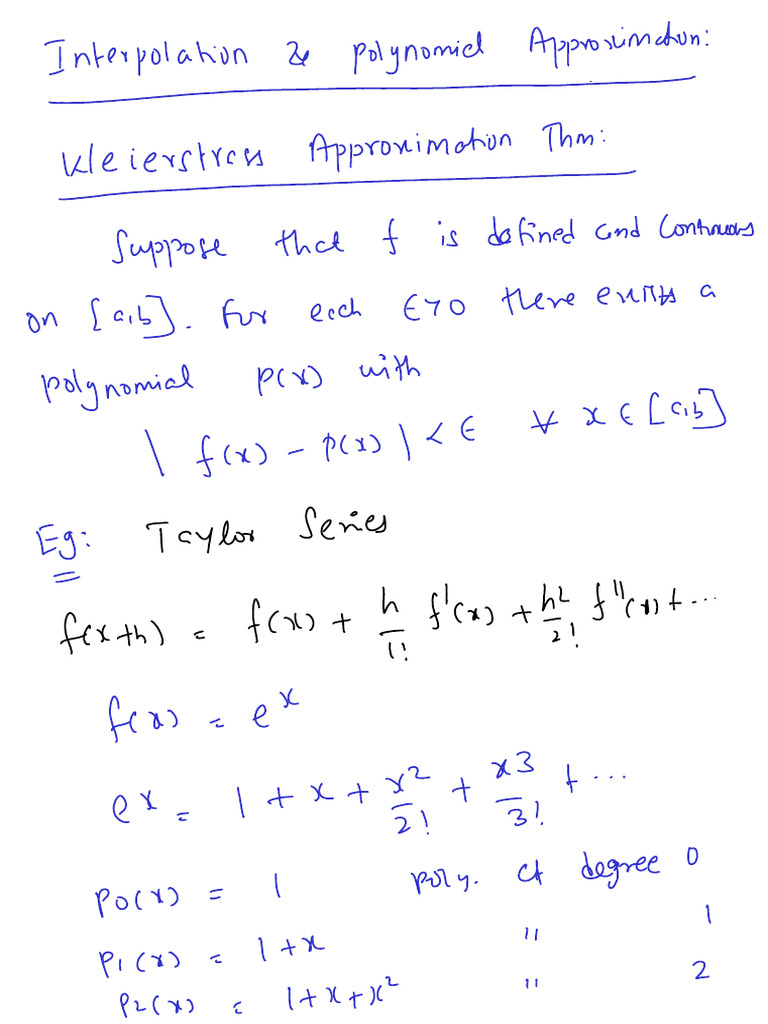 Interpolation & polynomial Approximation:
Weierstrass Approximation Thm:
Suppose that f is defined and Continuous
on [a,b]. For each ϵ>0 there exists a
polynomial p(x) with
| f(x) - p(x) | < ϵ ∀ x ∈ [a,b]
Eg: Taylor Series
f(x+h) = f(x) + h/1! f'(x) + h²/2! f''(x) + ...
f(x) = e^x
e^x = 1 + x + x²/2! + x3/3! + ...
P0(x) = 1 poly. of degree 0
P1(x) = 1+x " 1
P2(x) = 1+x+x² " 2